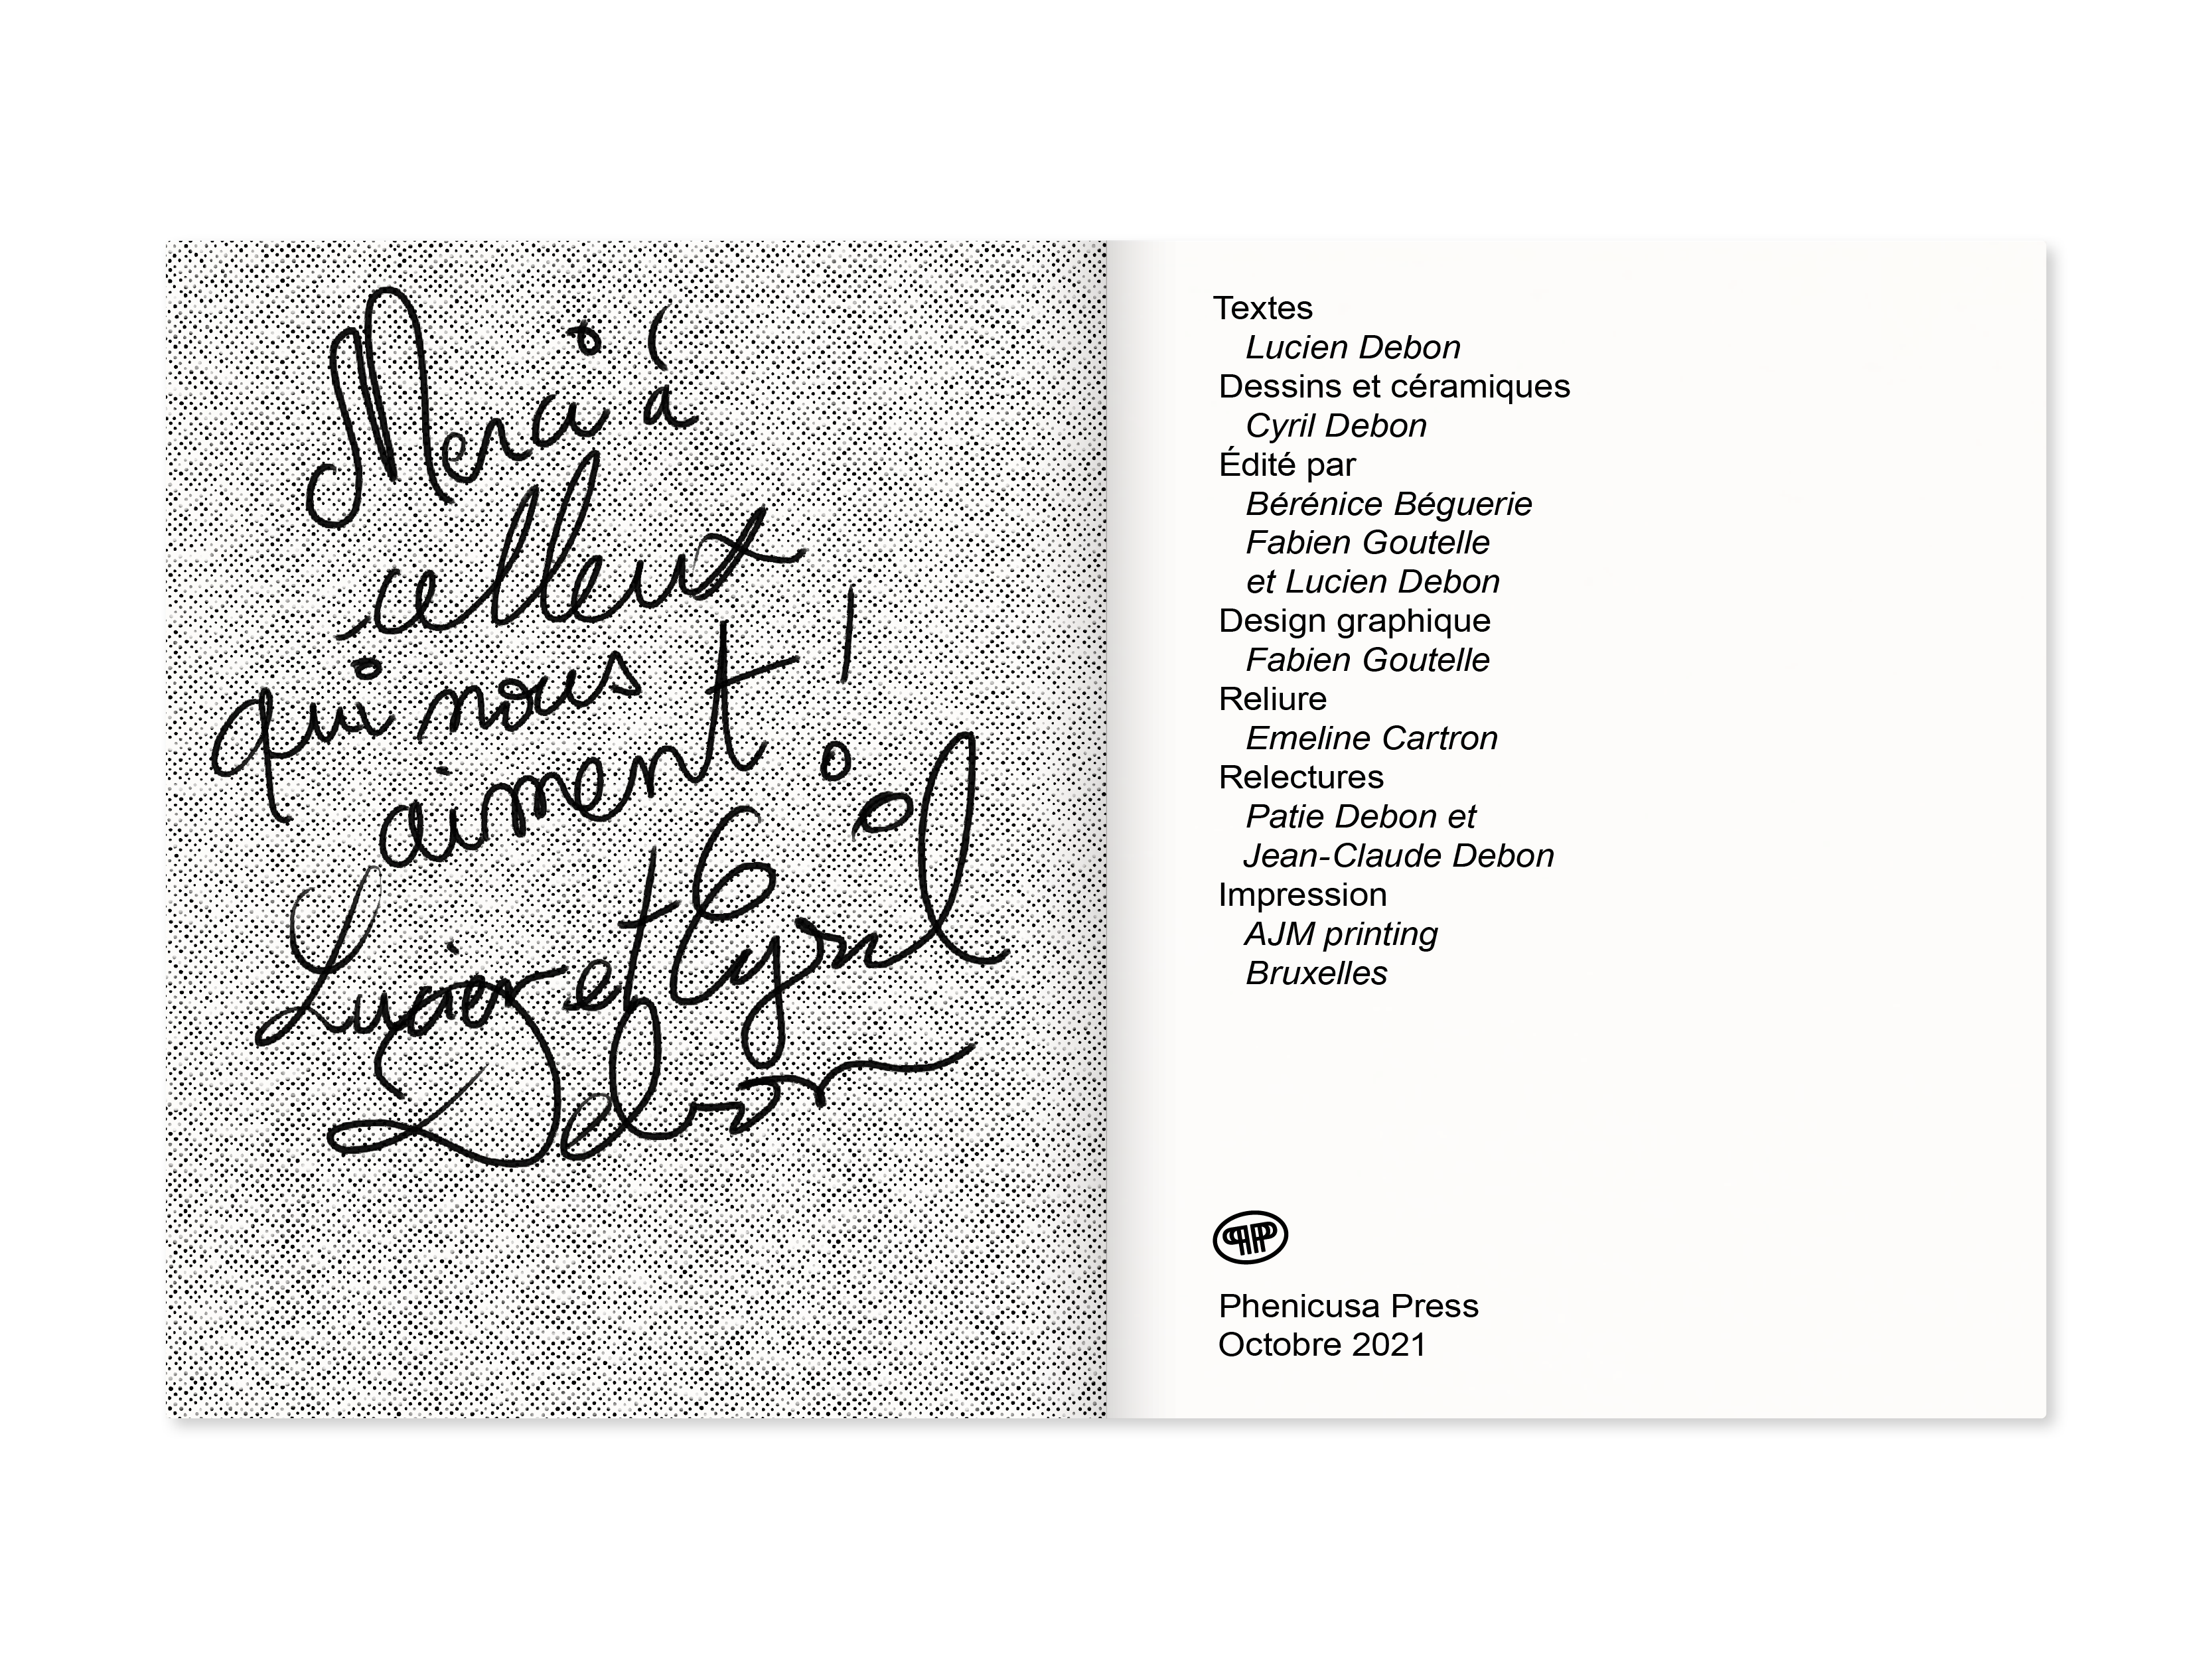 Merci à
celleux
qui nous
aiment !
Lucien et Cyril
Debon
Textes
Lucien Debon
Dessins et céramiques
Cyril Debon
Édité par
Bérénice Béguerie
Fabien Goutelle
et Lucien Debon
Design graphique
Fabien Goutelle
Reliure
Emeline Cartron
Relectures
Patie Debon et
Jean-Claude Debon
Impression
AJM printing
Bruxelles
PP
Phenicusa Press
Octobre 2021